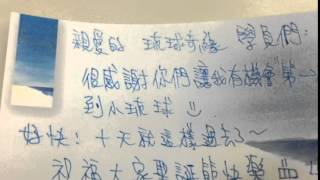 親愛的 琉球奇緣 學員們：
很感謝你們讓我有機會"第一
到小琉球
好快！十天就這樣過去了～
祝福大家聖誕節快樂